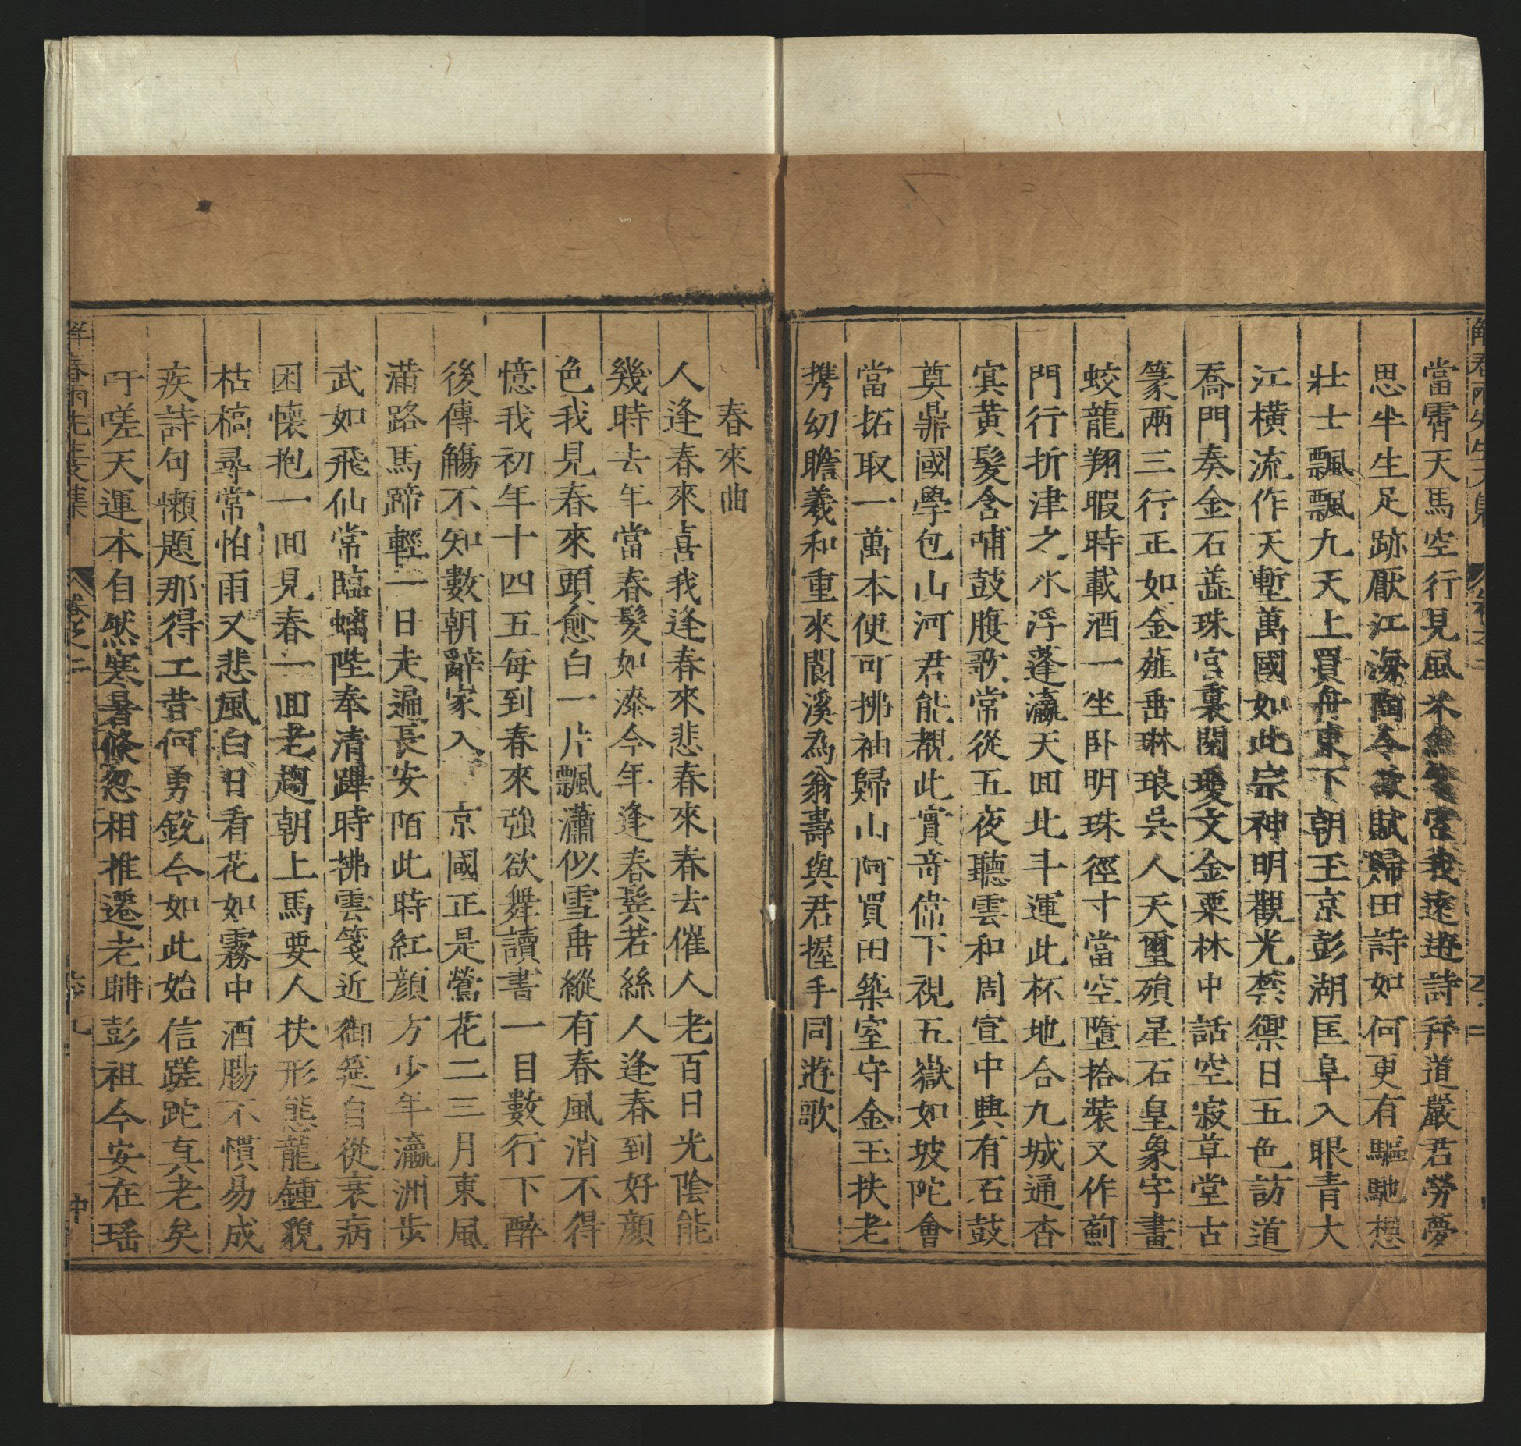 當霄天馬空行見風米
思半生足跡厭江海
賦歸田詩如何更有驅馳想
壯士飄飄九天上買舟東下朝王京彭湖匡阜入眼青大
江橫流作天塹萬國如此宗神明觀光禁禦日五色訪道
喬門奏金石蕋珠宮裏閱瓊文金粟林中話空寂草堂古
篆兩三行正如金薤垂琳琅吳人天璽殞星石皇象字畫
蛟龍翔暇時載酒一坐卧明珠徑寸當空墮拾裝又作薊
門行折津之水浮蓬瀛天回北斗運此杯地合九城通杏
寞黃髮含哺鼓腹歌常從五夜聽雲和周宣中興有石鼓
奠鼎國學包山河君能覩此實奇偉下視五嶽如坡陀會
當拓取一萬本便可拂袖歸山阿買田築室守金玉扶老
携幼瞻羲和重來閬溪為翁壽與君握手同遊歌
春來曲
人逢春來喜我逢春來悲春來春去催人老百日光陰能
幾時去年當春髮如漆今年逢春鬂若絲人逢春到好顔
色我見春來頭愈白一片飄瀟似雪垂縱有春風消不得
憶我初年十四五每到春來強欲舞讀書一目數行下醉
後傳觴不知數朝辭家入京國正是鶯花二三月東風
滿路馬蹄輕一日走遍長安陌此時紅顔方少年瀛洲步
武如飛仙常臨螭陛奉清蹕時拂雲箋近御筵自從衰病
困懷抱一回見春一回老趨朝上馬要人扶形態龍鍾貌
枯槁尋常怕雨又悲風白日看花如霧中酒膓不慣易成
疾詩句懶題那得工昔何勇銳今如此始信蹉跎真老矣
吁嗟天運本自然寒暑倐忽相推遷老聃彭祖今安在瑶
解春雨先生文集
卷之二